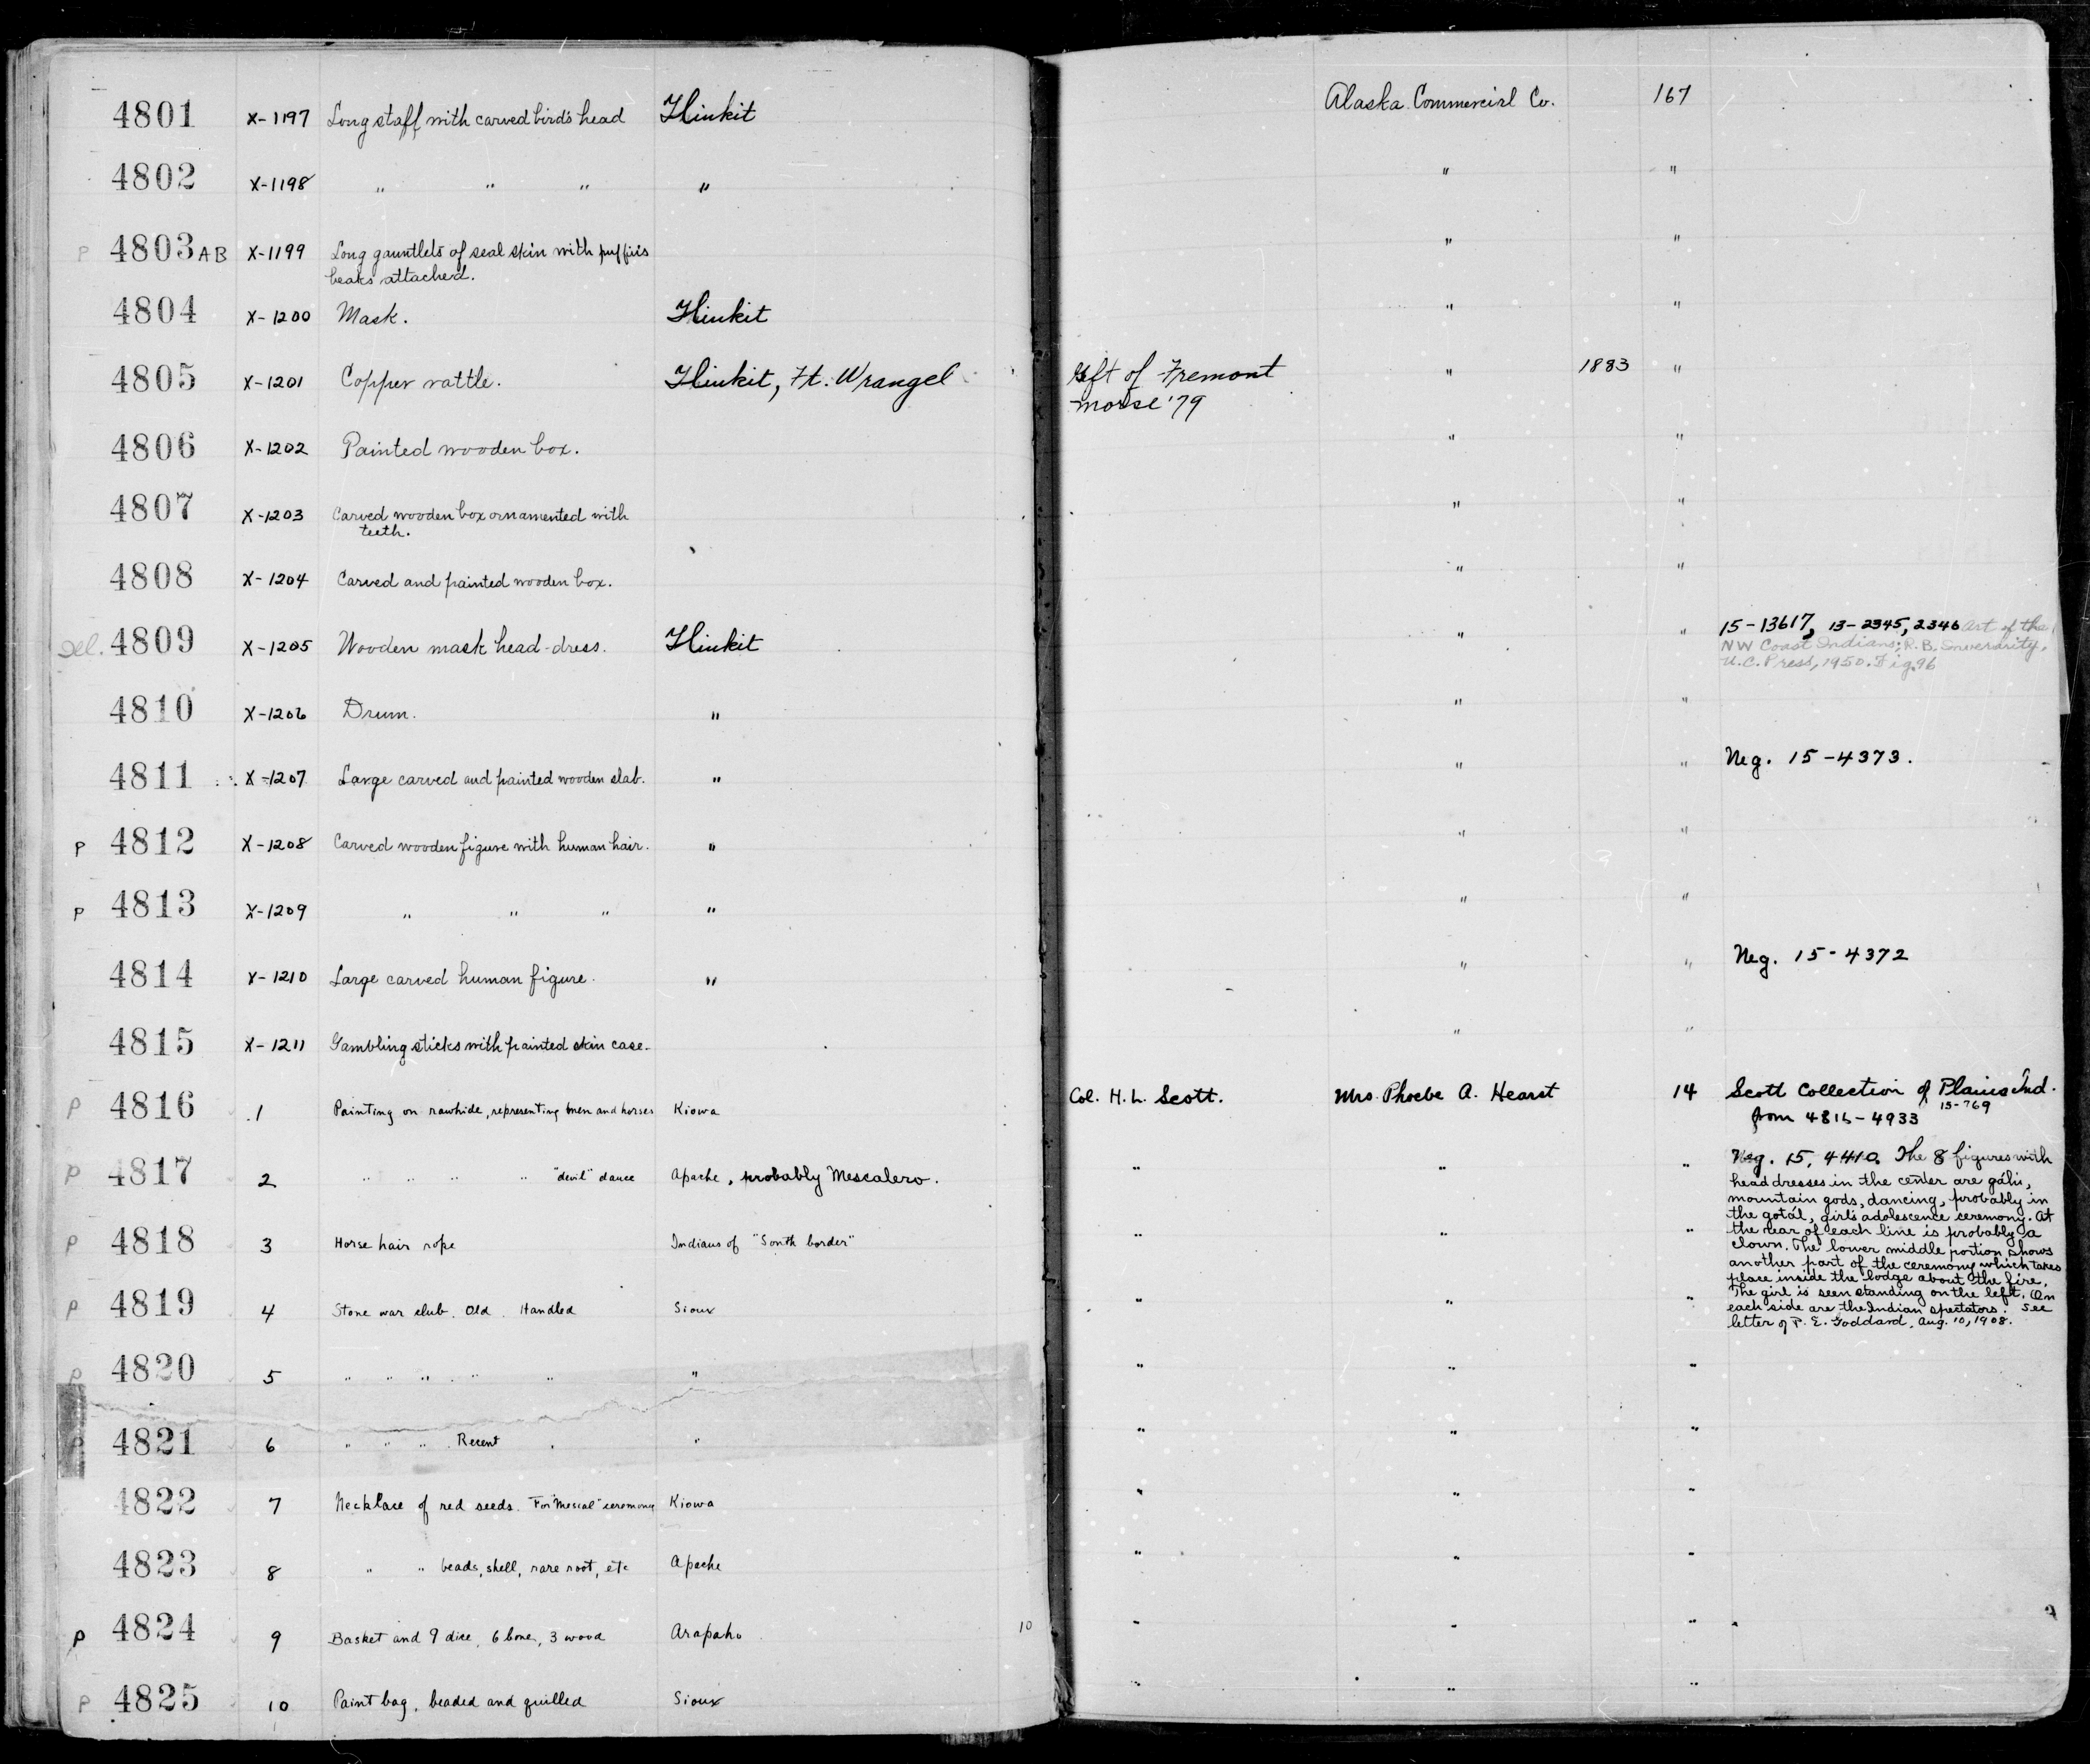 4801 X-1197 Long staff with carved bird's head Tlinkit Alaska Commercial Co. 167
4802 X-1198 " " " " " "
P 4803 AB X-1199 Long gauntlets of seal skin with puffin's " "
beaks attached.
4804 X-1200 Mask. Tlinkit " "
4805 X-1201 Copper rattle. Tlinkit, Ft. Wrangel Gift of Fremont " 1883 "
Morse '79
4806 X-1202 Painted wooden box. " "
4807 X-1203 Carved wooden box ornamented with " "
teeth.
4808 X-1204 Carved and painted wooden box. " "
Del. 4809 X-1205 Wooden mask head-dress. Tlinkit " " 15-13617, 13-2345, 2346 Art of the
NW Coast Indians; R.B. Inverarity,
U.C. Press, 1950. Fig. 96
4810 X-1206 Drum. " " "
4811 X-1207 Large carved and painted wooden slab. " " " Neg. 15-4373.
P 4812 X-1208 Carved wooden figure with human hair. " " "
P 4813 X-1209 " " " " " "
4814 X-1210 Large carved human figure. " " " Neg. 15-4372
4815 X-1211 Gambling sticks with painted skin case. " "
P 4816 1 Painting on rawhide, representing men and horses Kiowa Col. H. L. Scott. Mrs. Phoebe A. Hearst 14 Scott Collection of Plains Ind.
15-769
from 4816-4933
P 4817 2 " " " " "devil" dance Apache, probably Mescalero. " " " Neg. 15, 4410. The 8 figures with
headdresses in the center are gáhi,
mountain gods, dancing, probably in
the gotál, girl's adolescence ceremony. At
P 4818 3 Horse hair rope Indians of "South border" " " " the rear of each line is probably a
clown. The lower middle portion shows
another part of the ceremony which takes
place inside the lodge about the fire.
P 4819 4 Stone war club. Old. Handled Sioux " " " The girl is seen standing on the left. On
each side are the Indian spectators. See
letter of P. E. Goddard, Aug. 10, 1908.
P 4820 5 " " " " " " " " "
P 4821 6 " " " Recent " " " " "
4822 7 Necklace of red seeds. For "Mescal" ceremony Kiowa " " "
4823 8 " " beads, shell, rare root, etc Apache " " "
P 4824 9 Basket and 9 dice, 6 bone, 3 wood Arapaho 10 " " "
P 4825 10 Paint bag, beaded and quilled Sioux " " "